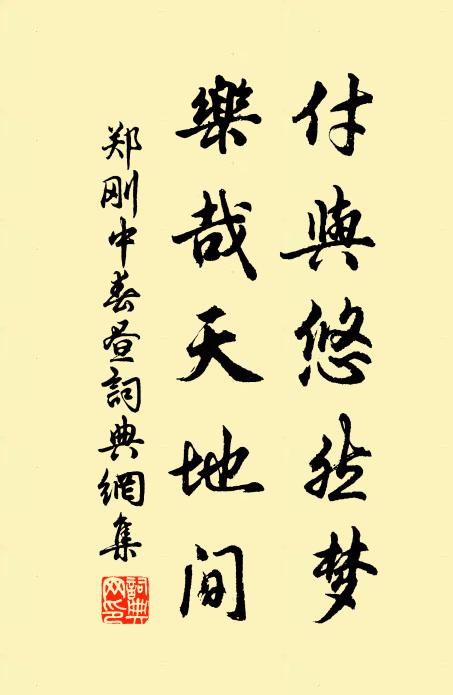 付與悠然梦
樂哉天地间
郑刚中春昼詞典網集
詞典网印